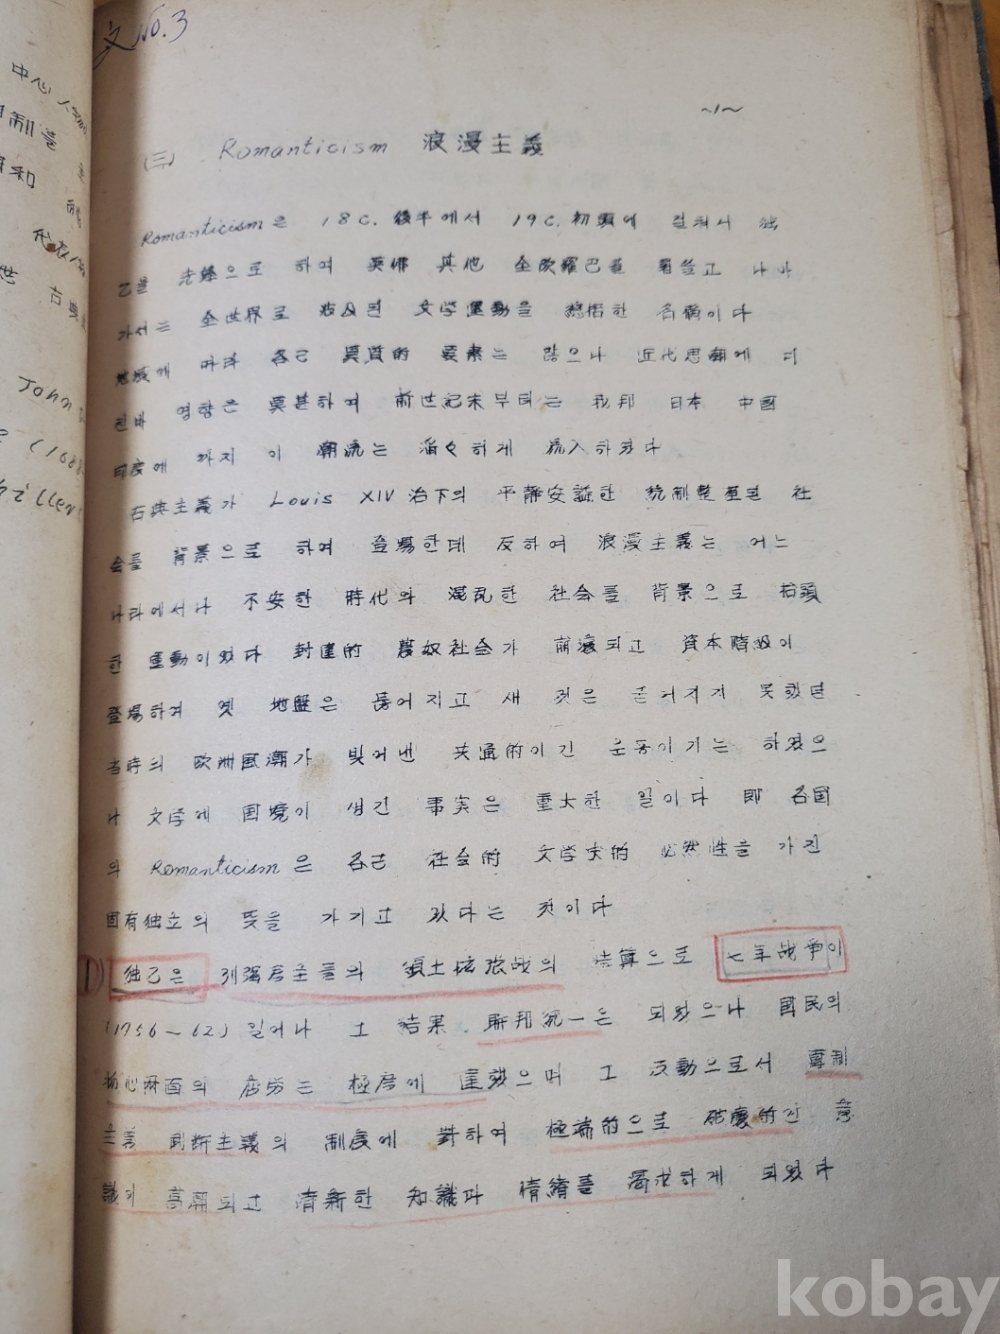 文 No. 3
~1~
(三) Romanticism 浪漫主義
Romanticism은 18C. 後半에서 19C. 初頭에 걸쳐서 独
乙을 先鋒으로 하여 英佛 其他 全欧羅巴를 휩쓸고 나아
가서는 全世界로 波及된 文学運動을 總括한 名稱이다
地域에 따라 各己 異質的 要素는 많으나 近代思潮에 미
친바 영향은 莫甚하여 前世紀末부터는 我邦 日本 中國
印度에 까지 이 潮流는 滔々하게 流入하였다
古典主義가 Louis XIV 治下의 平静安謐한 統制整重된 社
会를 背景으로 하여 登場한데 反하여 浪漫主義는 어느
나라에서나 不安한 時代와 混乱한 社会를 背景으로 抬頭
한 運動이었다 封建的 農奴社会가 崩壊되고 資本階級이
登場하여 옛 地盤은 무너지고 새 것은 굳어지지 못했던
当時의 欧洲風潮가 빚어낸 共通的이긴 운동이기는 하였으
나 文学에 国境이 생긴 事実은 重大한 일이다 即 各国
의 Romanticism은 各己 社会的 文学史的 必然性을 가진
固有独立의 뜻을 가기고 있다는 것이다
1) 独乙은 列强君主들의 領土拡張战의 结算으로 七年战争이
(1756~62) 일어나 그 结果 聯邦統一은 되었으나 國民의
物心兩面의 疲労는 極度에 達했으며 그 反動으로서 專制
主義 独断主義의 制度에 對하여 極端的으로 破壊的인 意
識이 高潮되고 清新한 知識과 情緖를 渴求하게 되었다
中心人物
制을
代表
古典
John
(168
kobay